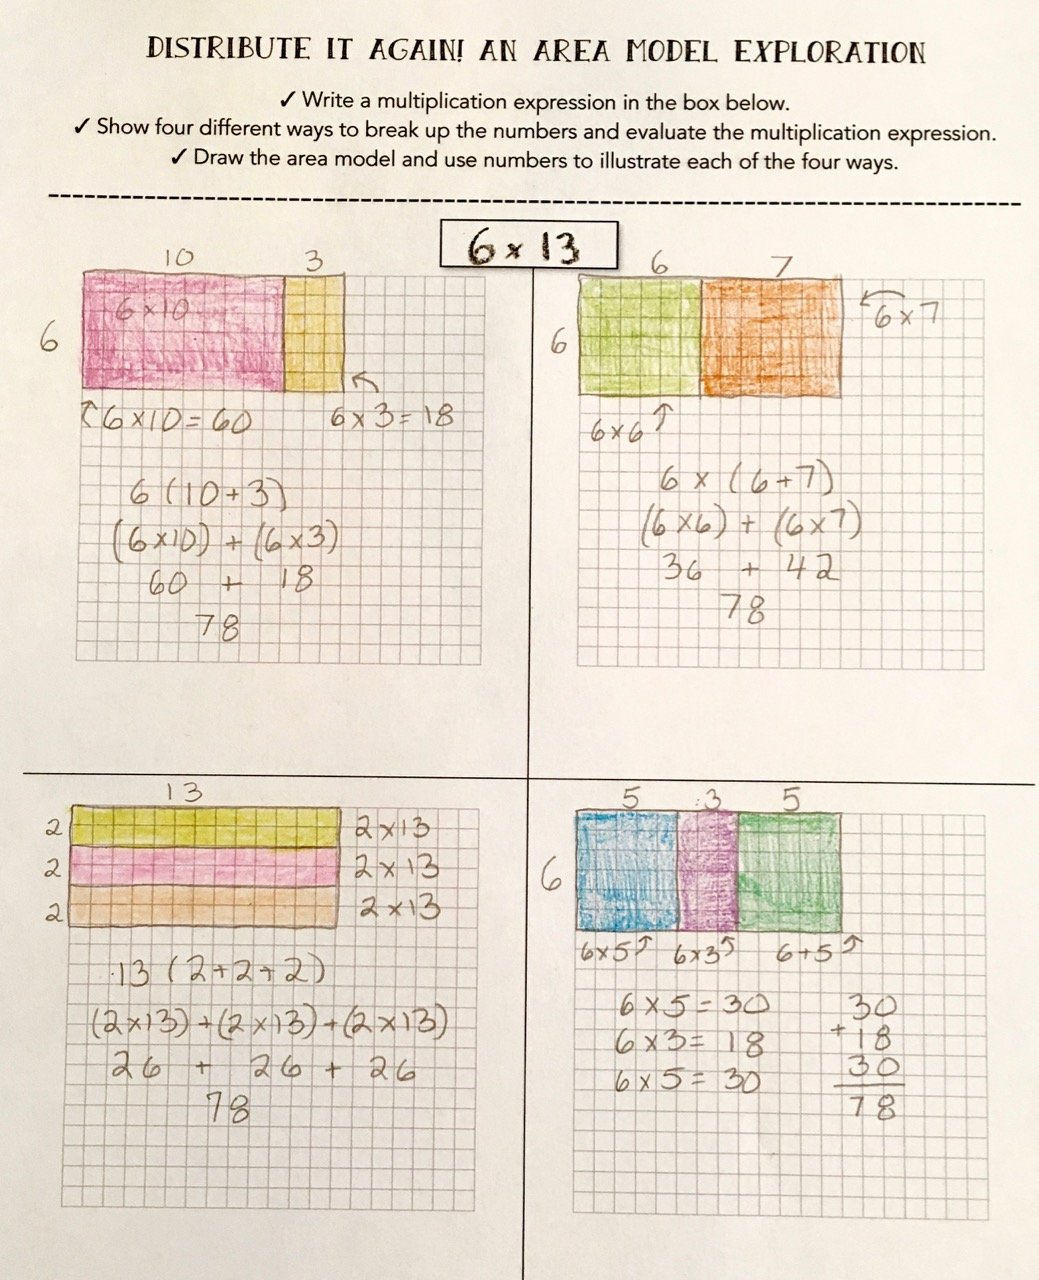 DISTRIBUTE IT AGAIN! AN AREA MODEL EXPLORATION
✓ Write a multiplication expression in the box below.
✓ Show four different ways to break up the numbers and evaluate the multiplication expression.
✓ Draw the area model and use numbers to illustrate each of the four ways.
6 x 13
10 3
6
6 x 10
6 x 10 = 60
6 x 3 = 18
6 (10 + 3)
(6 x 10) + (6 x 3)
60 + 18
78
6 7
6
6 x 7
6 x 6
6 x (6 + 7)
(6 x 6) + (6 x 7)
36 + 42
78
13
2 2 x 13
2 2 x 13
2 2 x 13
13 (2 + 2 + 2)
(2 x 13) + (2 x 13) + (2 x 13)
26 + 26 + 26
78
5 3 5
6
6 x 5 6 x 3 6 + 5
6 x 5 = 30
6 x 3 = 18
6 x 5 = 30
30
+ 18
30
78